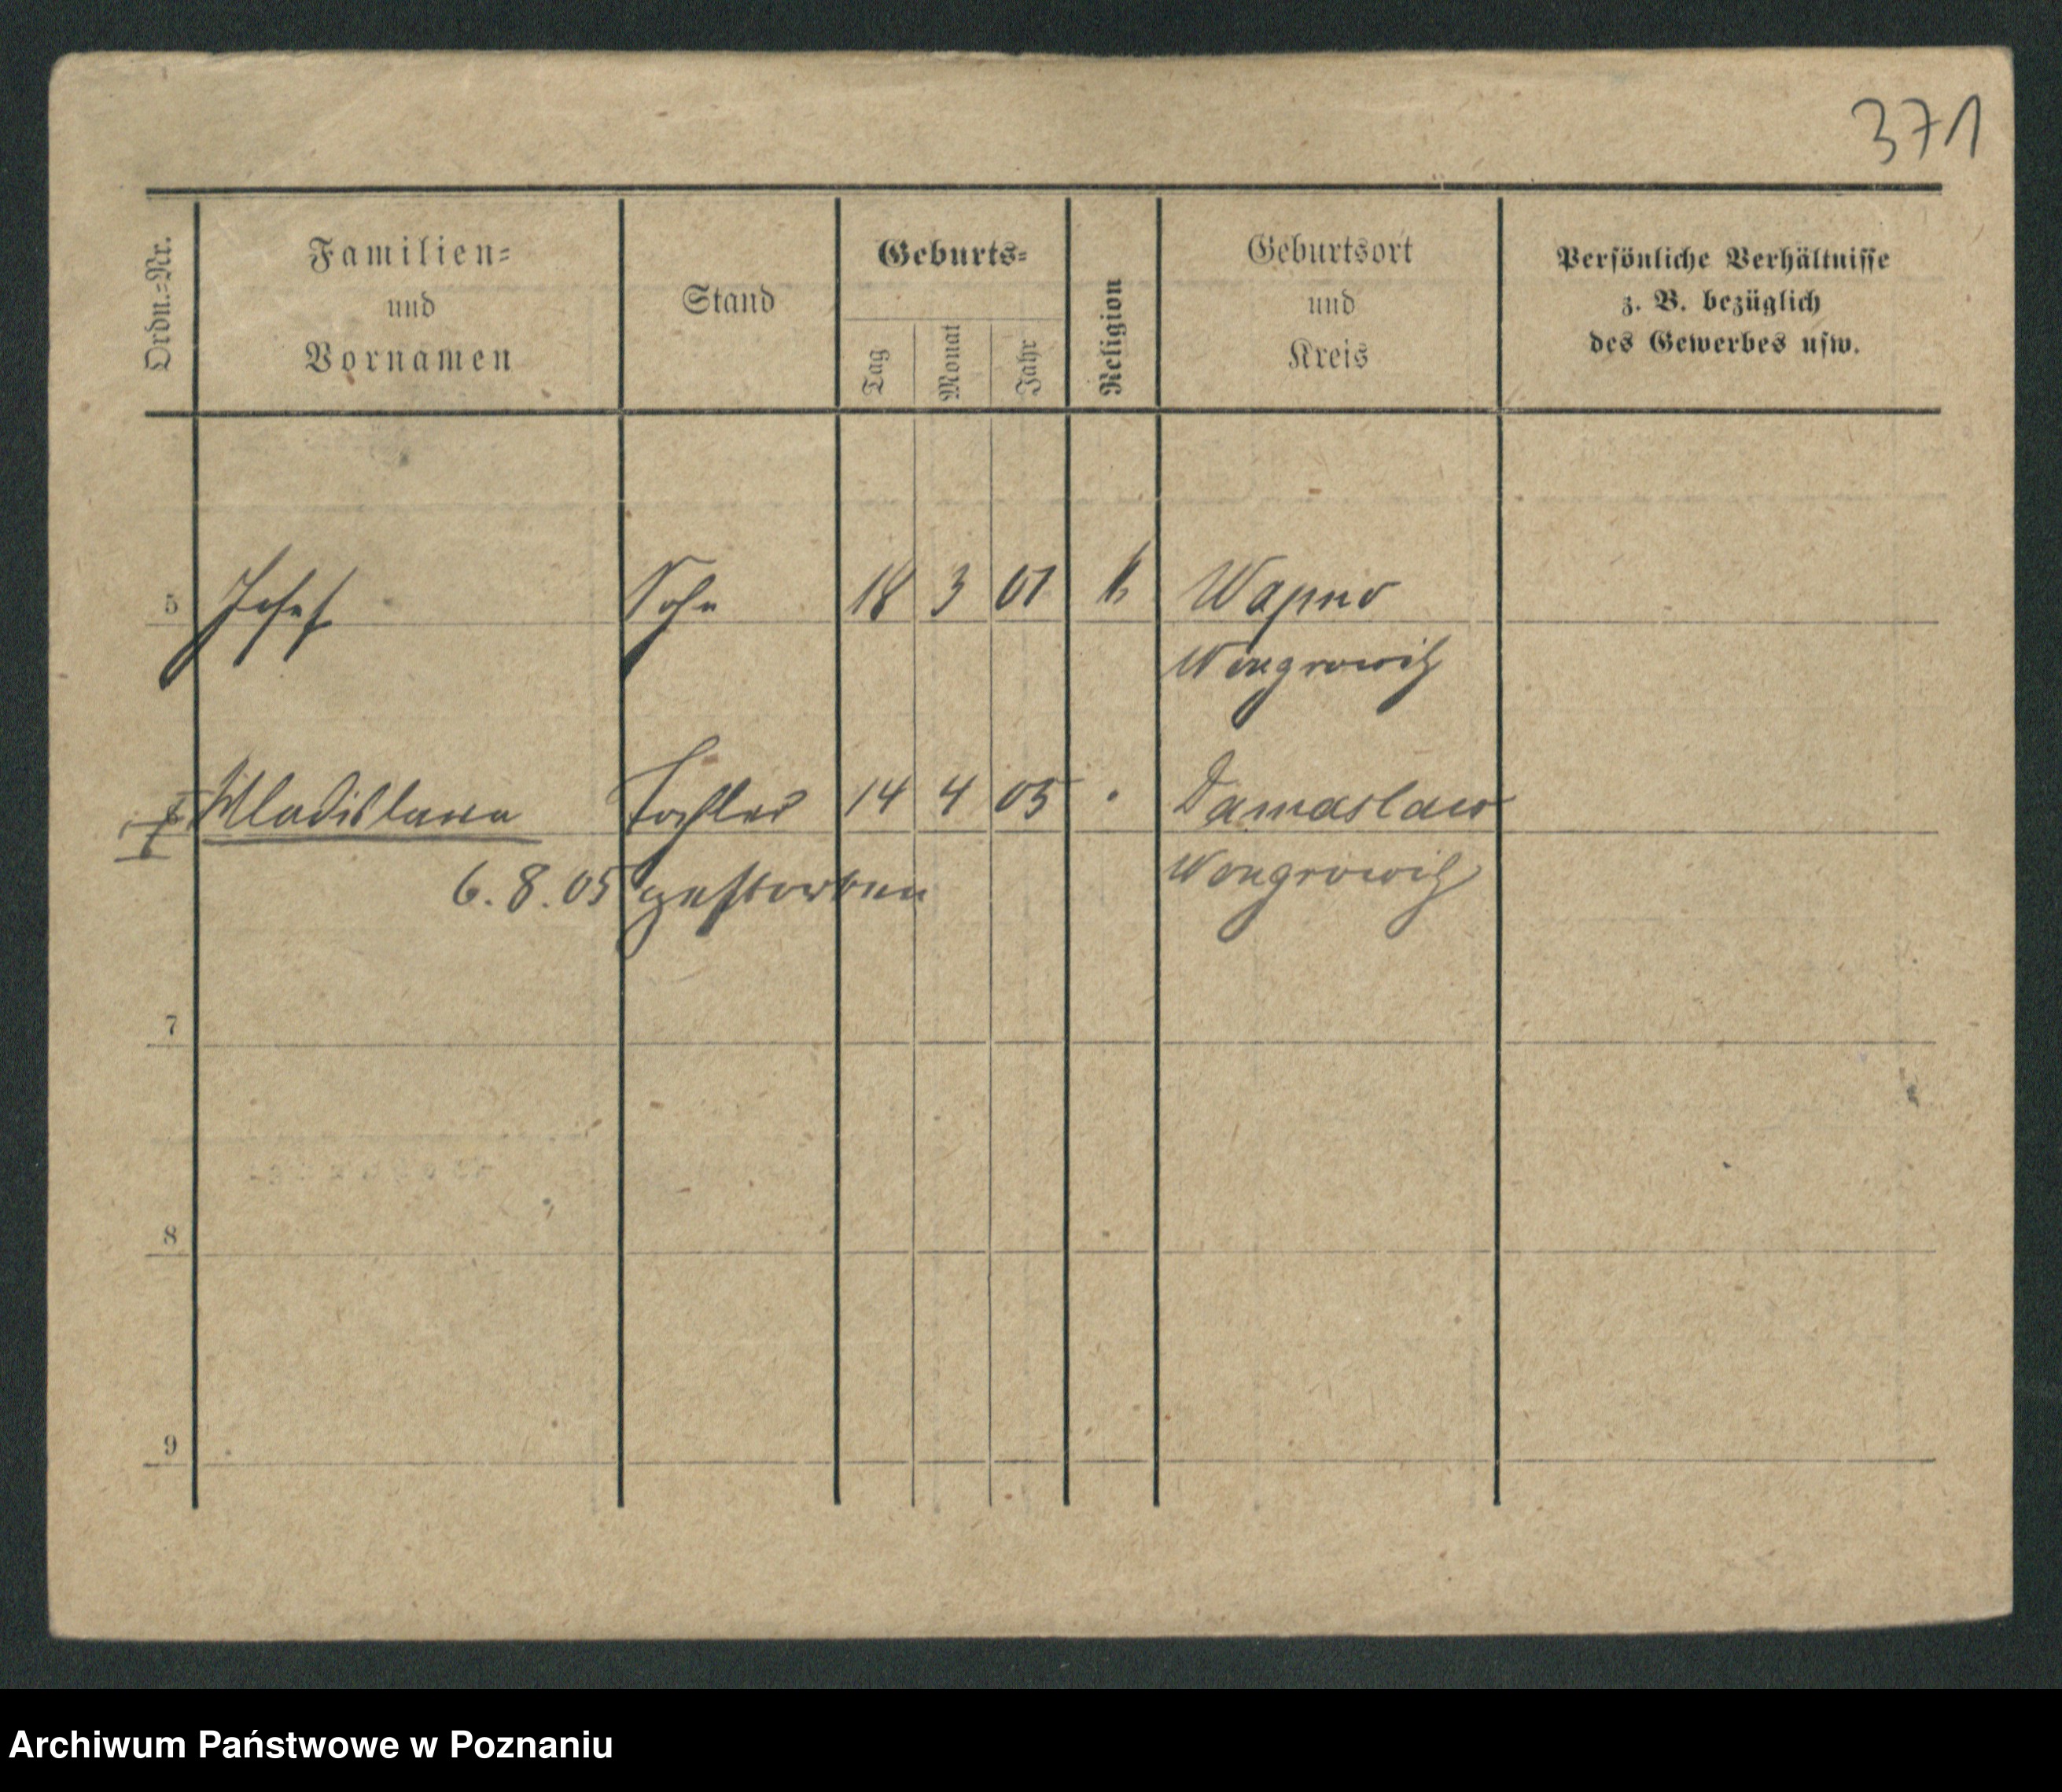 371
Ordn.-Nr.
Familien-
und
Vornamen
Stand
Geburts-
Tag
Monat
Jahr
Religion
Geburtsort
und
Kreis
Persönliche Verhältnisse
z. B. bezüglich
des Gewerbes usw.
5 Josef Sohn 18 3 01 k Wapno
Wongrowitz
Wladislawa Tochter 14 4 05 " Damaslaw
6. 8. 05 gestorben Wongrowitz
7
8
9
Archiwum Państwowe w Poznaniu